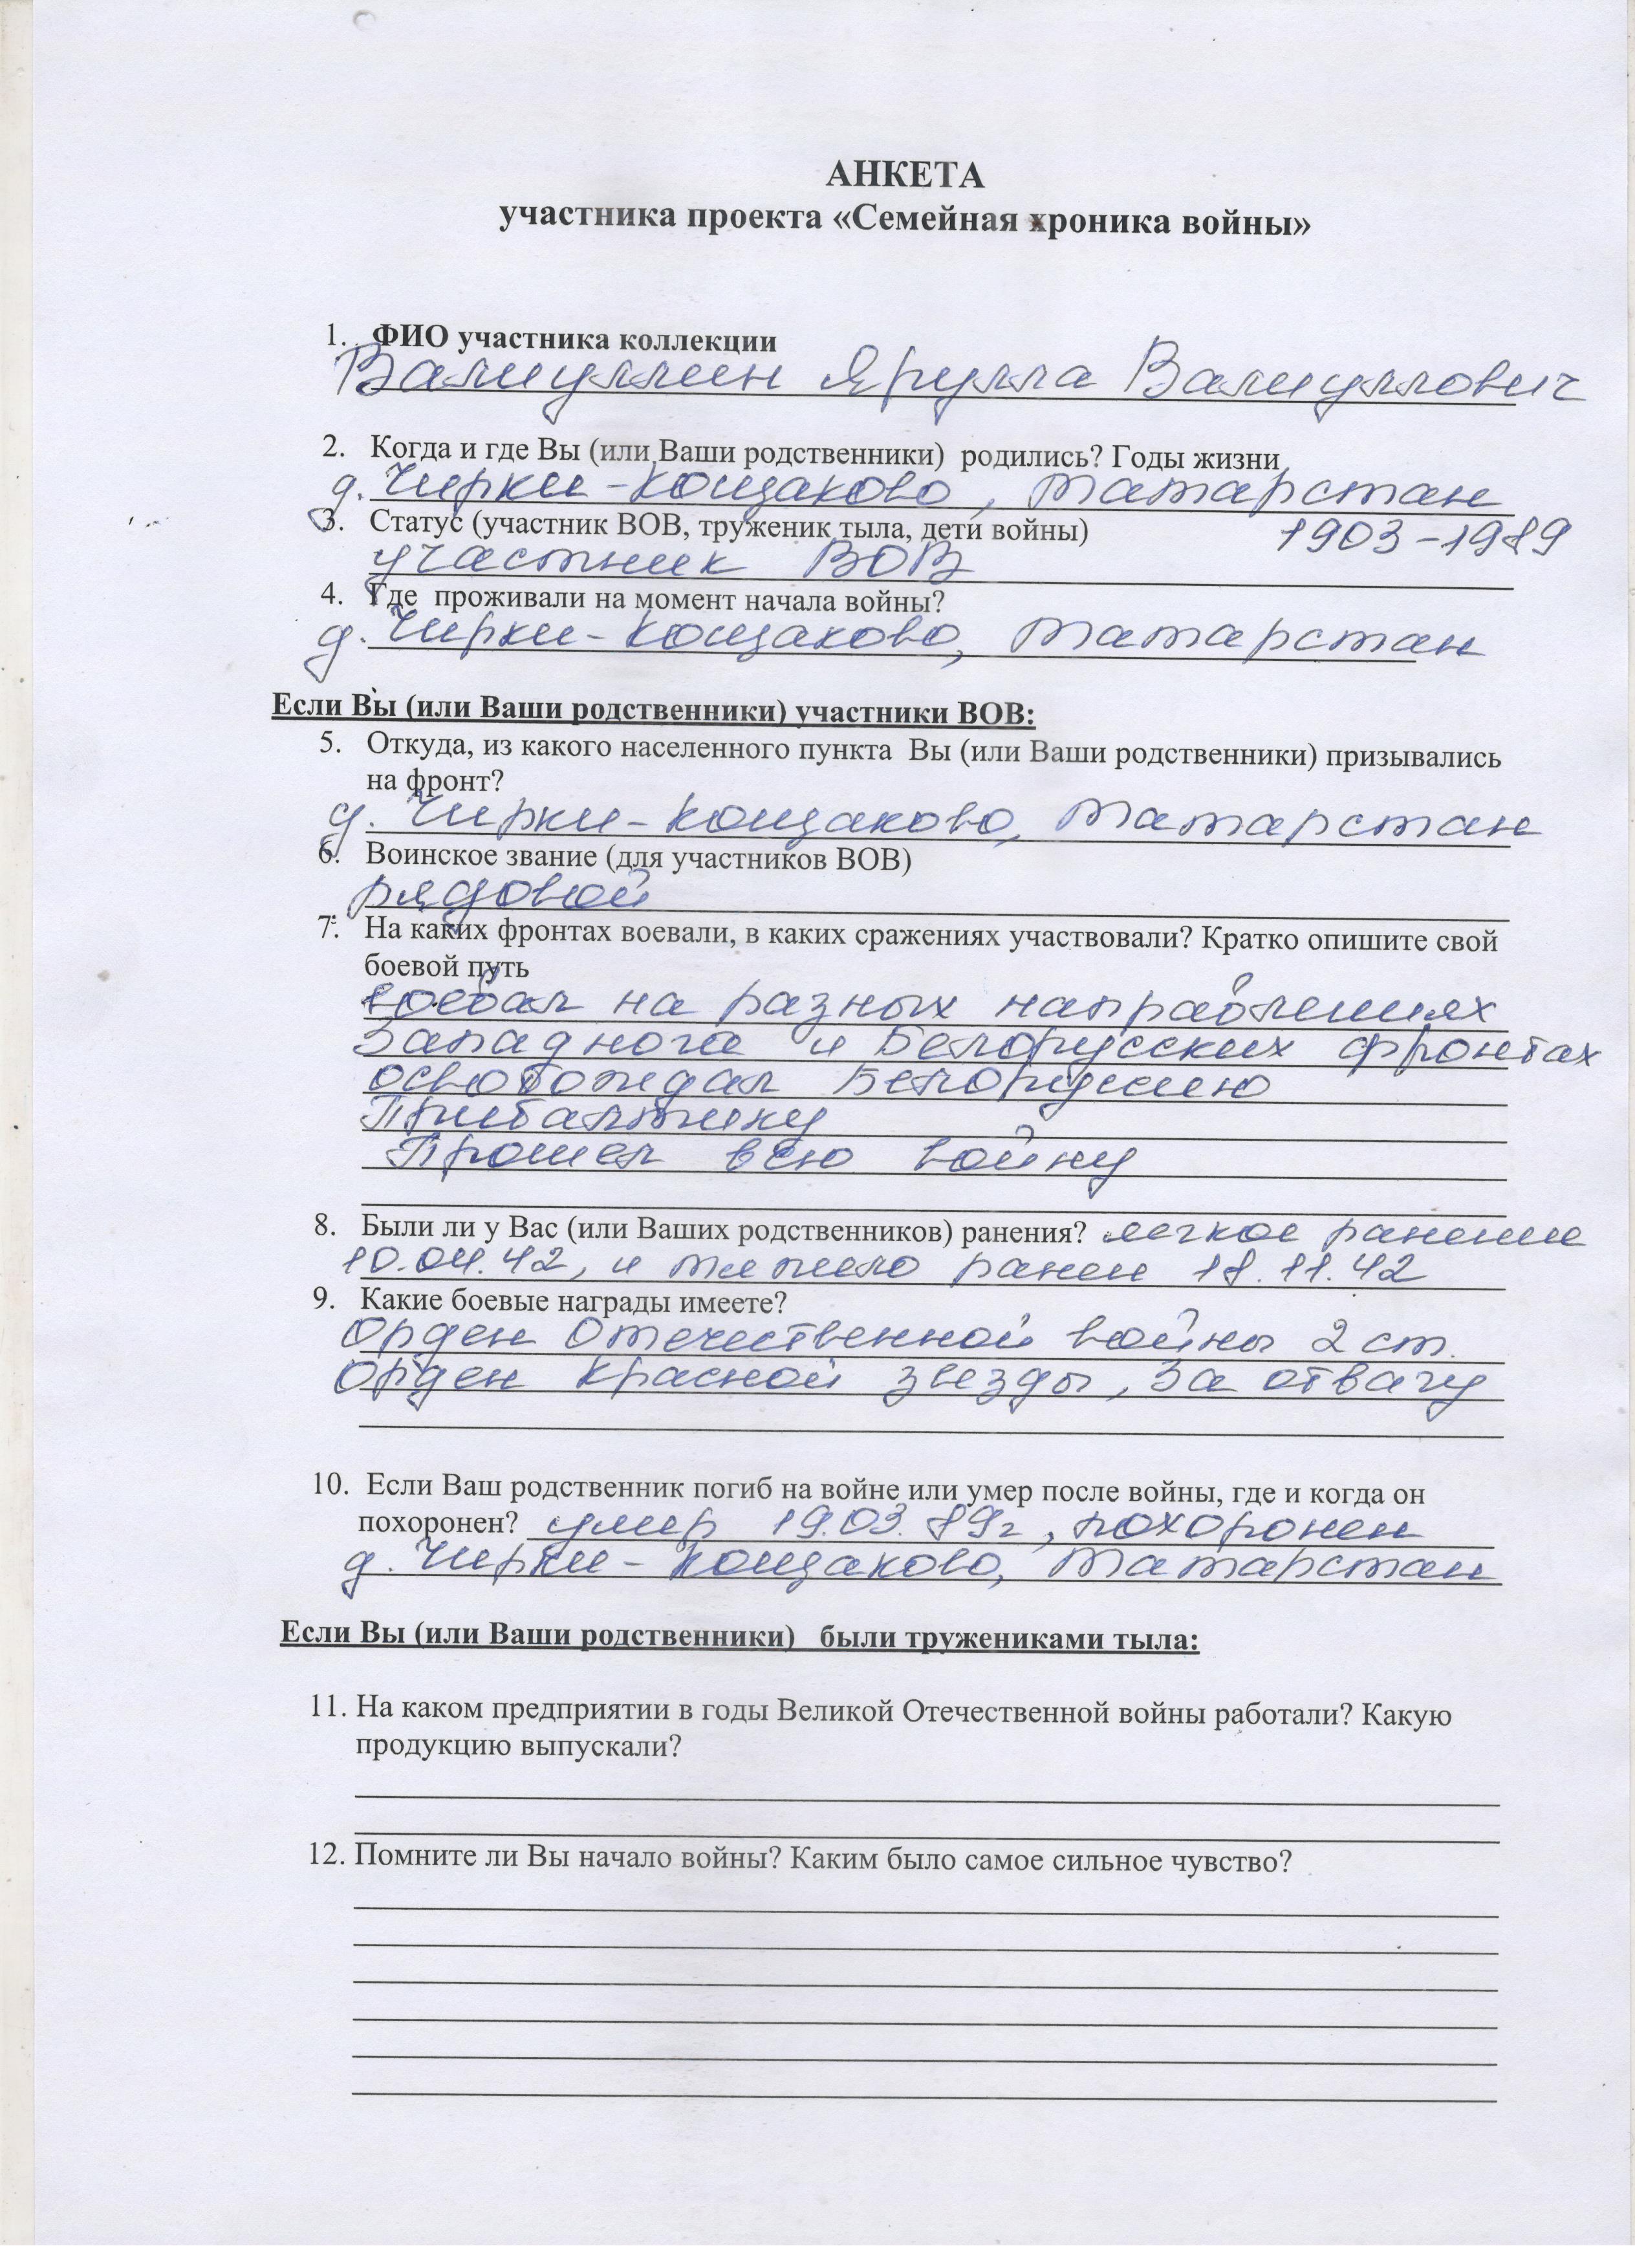 АНКЕТА
участника проекта «Семейная хроника войны»
1. ФИО участника коллекции
Валиуллин Ярулла Валиуллович
2. Когда и где Вы (или Ваши родственники) родились? Годы жизни
д. Чирки-Кощаково, Татарстан
3. Статус (участник ВОВ, труженик тыла, дети войны) 1903-1989
участник ВОВ
4. Где проживали на момент начала войны?
д. Чирки-Кощаково, Татарстан
Если Вы (или Ваши родственники) участники ВОВ:
5. Откуда, из какого населенного пункта Вы (или Ваши родственники) призывались
на фронт?
д. Чирки-Кощаково, Татарстан
6. Воинское звание (для участников ВОВ)
рядовой
7. На каких фронтах воевали, в каких сражениях участвовали? Кратко опишите свой
боевой путь
воевал на разных направлениях
Западного и Белорусских фронтах
освобождал Белоруссию
Прибалтику
Прошел всю войну
8. Были ли у Вас (или Ваших родственников) ранения? легкое ранение
10.04.42, и тяжело ранен 18.11.42
9. Какие боевые награды имеете?
Орден Отечественной войны 2 ст.
Орден Красной звезды, За отвагу
10. Если Ваш родственник погиб на войне или умер после войны, где и когда он
похоронен? умер 19.03.89г, похоронен
д. Чирки-Кощаково, Татарстан
Если Вы (или Ваши родственники) были тружениками тыла:
11. На каком предприятии в годы Великой Отечественной войны работали? Какую
продукцию выпускали?
12. Помните ли Вы начало войны? Каким было самое сильное чувство?